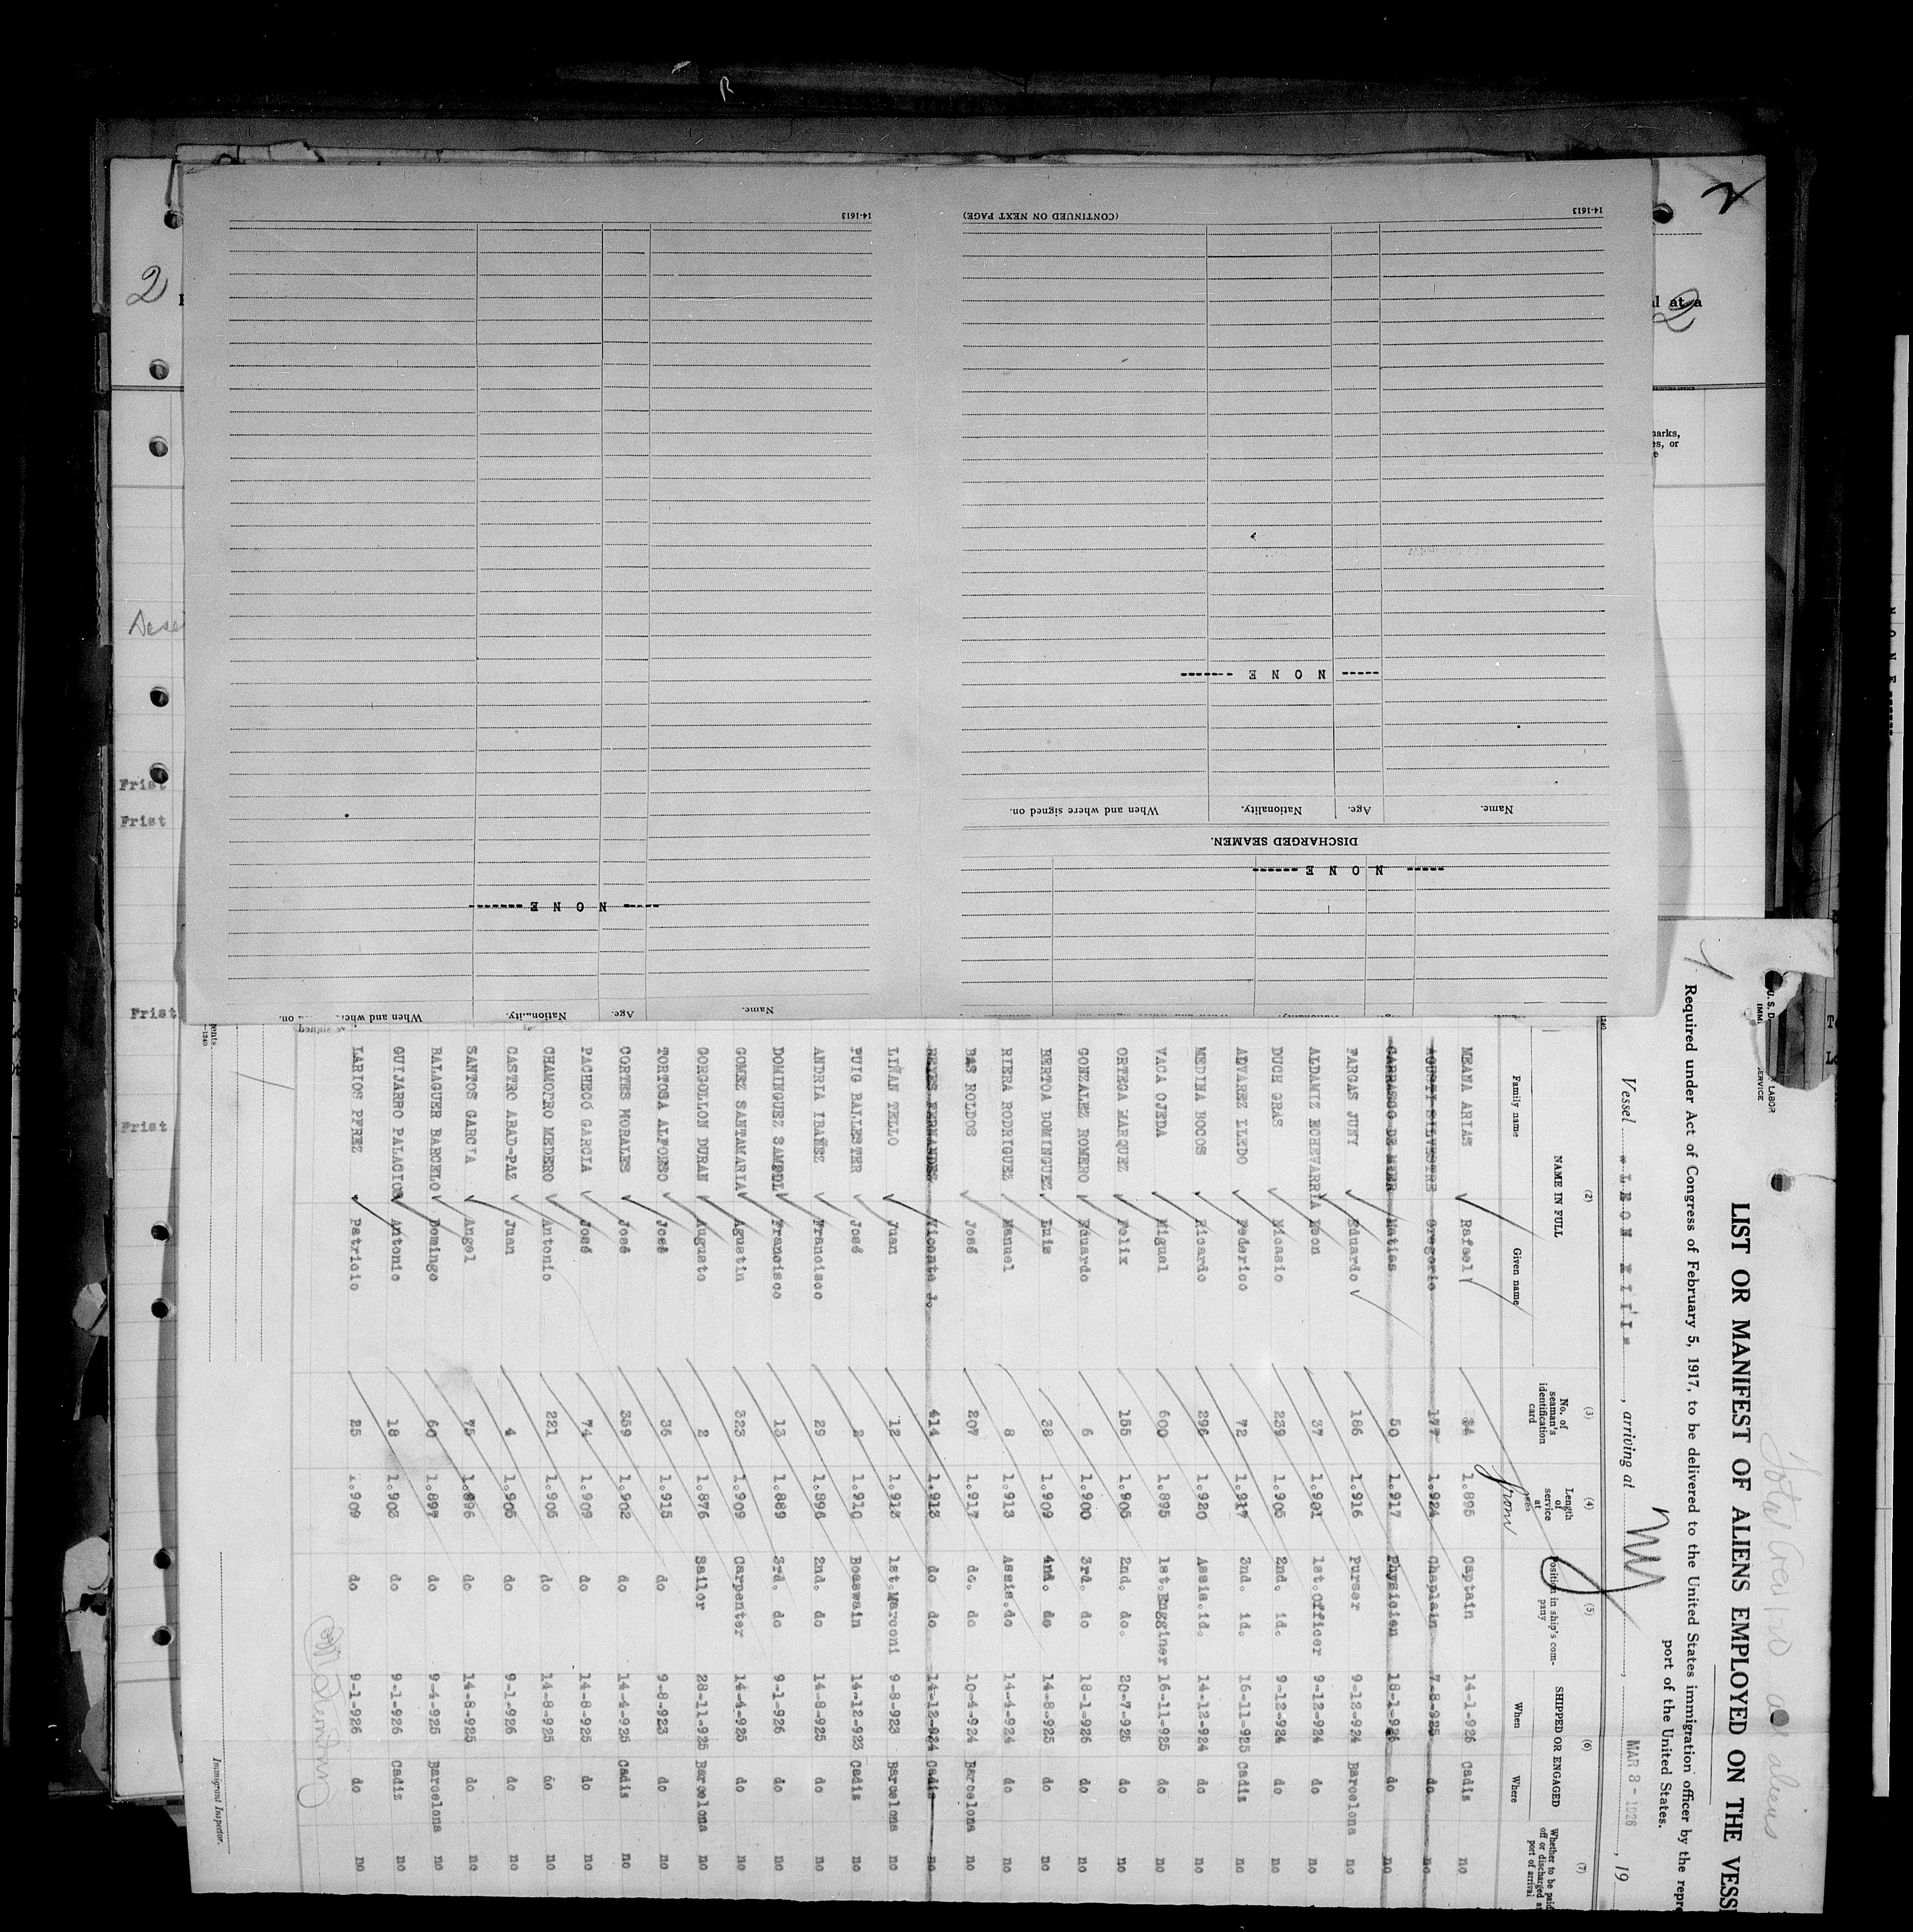 LIST OR MANIFEST OF ALIENS EMPLOYED ON THE VESS
Required under Act of Congress of February 5, 1917, to be delivered to the United States immigration officer by the repre
port of the United States.
Vessel "LEON XIII" , arriving at NY , MAR 8 - 1926 , 19
(2) (3) (4) (5) (6) (7)
NAME IN FULL No. of seaman's identification card Length of service at sea Position in ship's company SHIPPED OR ENGAGED Whether to be paid off or discharged at port of arrival
Family name Given name from When Where
MEANA ARIAS Rafael 34 1.895 Captain 14-1-926 Cadiz no
AGUSTI SILVESTRE Gregorio 177 1.924 Chaplain 7-8-925 do no
CARRASCO DE MIER Matias 50 1.917 Physician 18-1-926 do no
FARGAS JUNY Eduardo 186 1.916 Purser 9-12-924 Barcelona no
ALDAMIZ ECHEVARRIA Leon 37 1.901 1st.Officer 9-12-924 do no
DUCH GRAS Nicasio 239 1.905 2nd. id. 9-12-924 do no
ALVAREZ LLEDO Federico 72 1.917 3nd. id. 16-11-925 Cadiz no
MEDINA BOCOS Ricardo 296 1.920 Assis.id. 14-12-924 do no
VACA OJEDA Miguel 600 1.895 1st.Enginer 16-11-925 do no
ORTEGA MARQUEZ Felix 155 1.905 2nd. do. 20-7-925 do no
GONZALEZ ROMERO Eduardo 6 1.900 3rd. do 18-1-926 do no
BERTOA DOMINGUEZ Luis 38 1.909 4nd. do 14-8-925 do no
RIERA RODRIGUEZ Manuel 8 1.913 Assis.do 14-4-924 do no
BAS ROLDOS José 207 1.917 do. do 10-4-924 Barcelona no
REYES FERNANDEZ Vicente J. 414 1.913 do do 14-12-924 Cadiz no
LIÑAN TELLO Juan 12 1.913 1st.Marconi 9-8-923 Barcelona no
PUIG BALLESTER José 2 1.910 Boaswain 14-12-923 Cadiz no
ANDRIA IBAÑEZ Francisco 29 1.896 2nd. do 14-8-925 do no
DOMINGUEZ SAMPOL Francisco 13 1.889 3rd. do 9-1-926 do no
GOMEZ SANTAMARIA Agustin 323 1.909 Carpenter 14-4-925 do no
GORGOLLON DURAN Augusto 2 1.876 Sailor 28-11-925 Barcelona no
TORTOSA ALFONSO José 36 1.915 do 9-8-923 do no
CORTES MORALES José 359 1.902 do 14-4-925 Cadiz no
PACHECO GARCIA José 74 1.909 do 14-8-925 do no
CHAMORRO MEDERO Antonio 221 1.905 do 14-8-925 do no
CASTRO ABAD-PAZ Juan 4 1.905 do 9-1-926 do no
SANTOS GARCIA Angel 75 1.896 do 14-8-925 do no
BALAGUER BARCELO Domingo 60 1.897 do 9-4-925 Barcelona no
GUIJARRO PALACIOS Antonio 18 1.903 do 9-1-926 Cadiz no
LARIOS PEREZ Patricio 25 1.909 do 9-1-926 do no
Immigrant Inspector.
14-1613
(CONTINUED ON NEXT PAGE)
14-1613
----- N O N E -------
Name. Age. Nationality. When and where signed on.
DISCHARGED SEAMEN.
----- N O N E ------
----- N O N E -------
Name. Age. Nationality. When and where
2
2
l at a
Frist
Frist
Frist
Frist